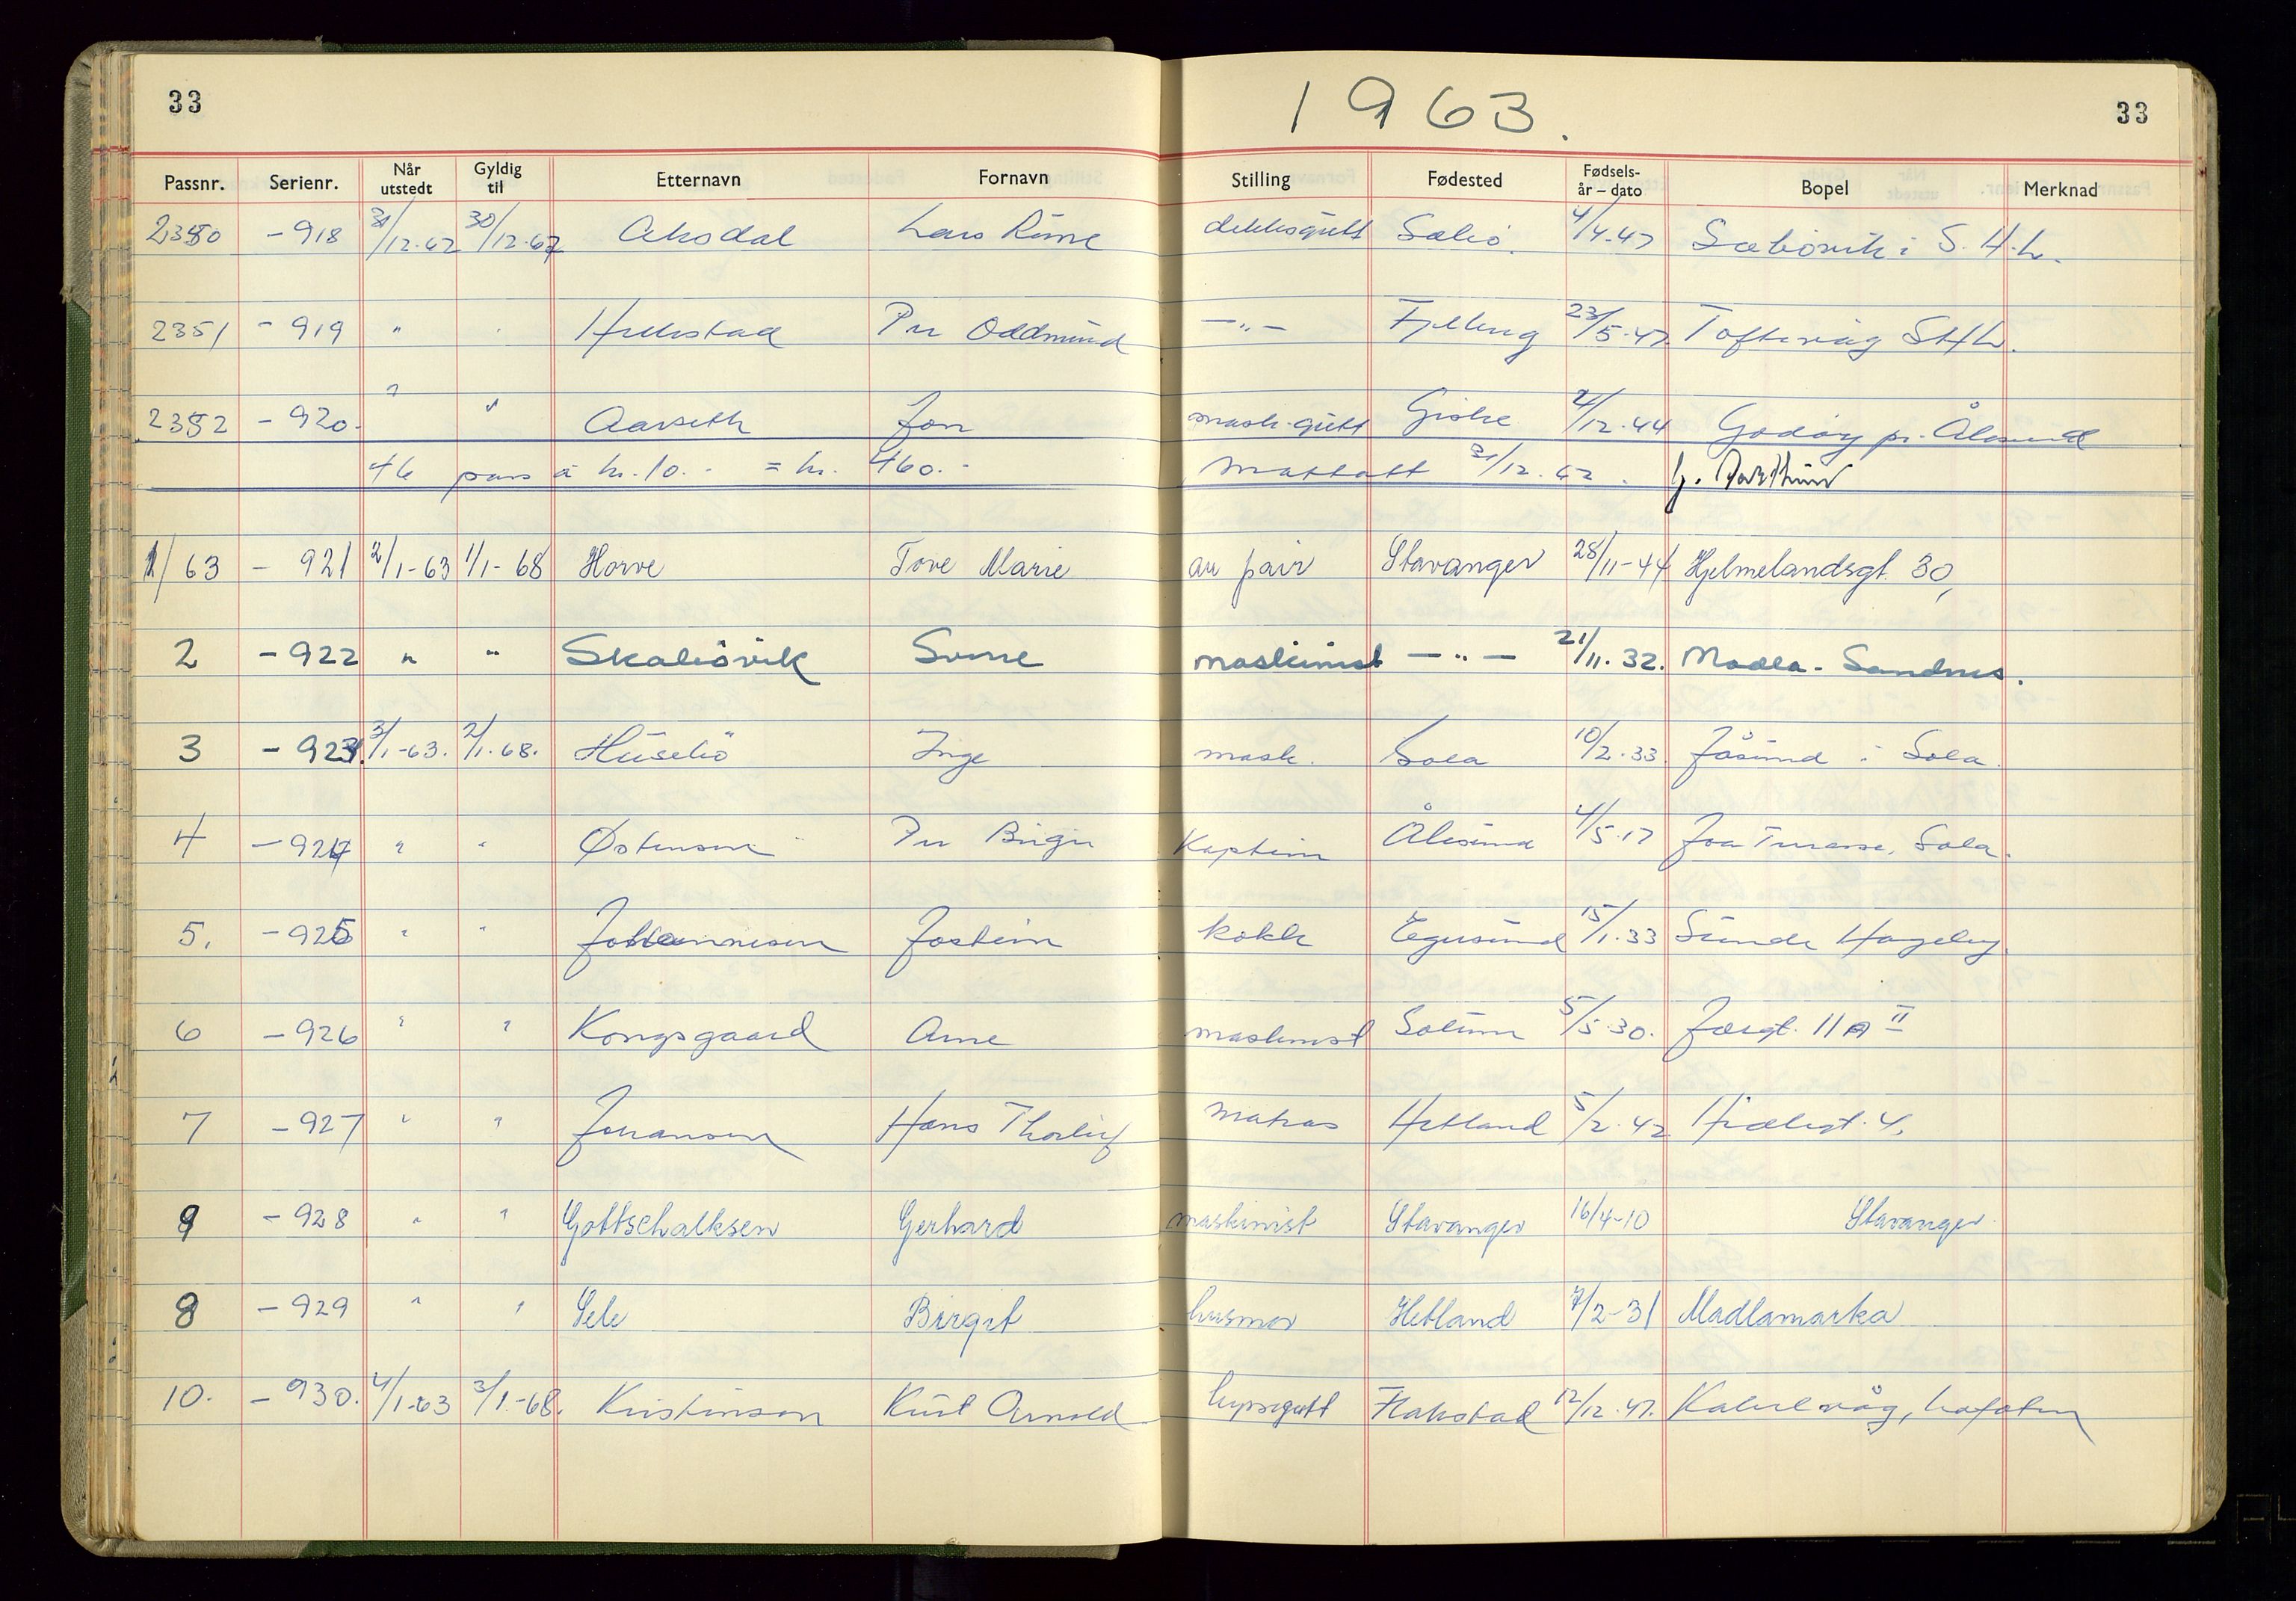 33
1963.
33
Passnr. Serienr. Når utstedt Gyldig til Etternavn Fornavn Stilling Fødested Fødsels- år – dato Bopel Merknad
2350 - 918 31/12-62 30/12-67 Aksdal Lars Rune dekksgutt Sæbö. 4/4-47 Sæbövik i S. H.L.
2351 - 919 " " Per Oddmund -"- Fjelberg 23/5-47 Toftevåg SHL.
2352 - 920. " " Aarseth Jon mask-gutt Giske 12.44 Godöy pr. Ålesund
46 pass a kr. 10.- = kr. 460.- Mottatt 31/12.62.
1/63 - 921 2/1-63 1/1-68 Horve Tove Marie au pair Stavanger 28/11-44 Hjelmelandsgt. 30,
2 - 922 " " Skaliövik Sverre maskinist -"- 21/11.32. Madla - Sandnes.
3 - 923. 3/1-63. 2/1.68. Husebö Inge mask. Sola 10/2.33. Jåsund i Sola.
4 - 924 " " Østensen Per Birger Kaptein Ålesund 4/5.17 Joa Terasse, Sola.
5. - 925 " " Johannesen Jostein kokk Egersund 15/1.33 Sunde Hageby.
6 - 926 " " Kongsgaard Arne maskinist Solum 5/5.30. 11 A II
7 - 927 " " Johansen Hans Thorleif matros Hetland 5/2.42 4.
9 - 928 " " Gottschalksen Gerhard maskinist Stavanger 16/4-10 Stavanger
8 - 929 " " Sele Birgit husmor Hetland 7/2-31 Madlamarka
10. - 930. 4/1-63 3/1-68. Kristinson Kurt Arnold byssegutt Flakstad 12/12.47. Kabelvåg, Lofoten